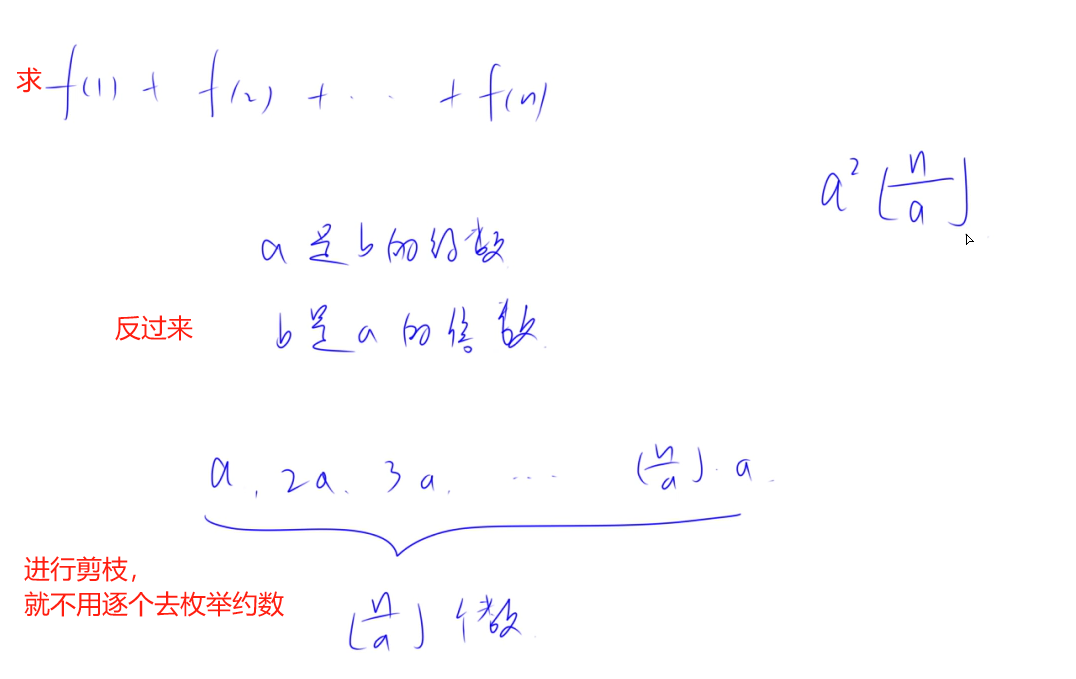 求 f(1) + f(2) + ... + f(n)
a² ⌊n/a⌋
a 是 b 的约数
反过来 b 是 a 的倍数.
a, 2a, 3a, ... ⌊n/a⌋·a.
进行剪枝，
就不用逐个去枚举约数
⌊n/a⌋ 个数